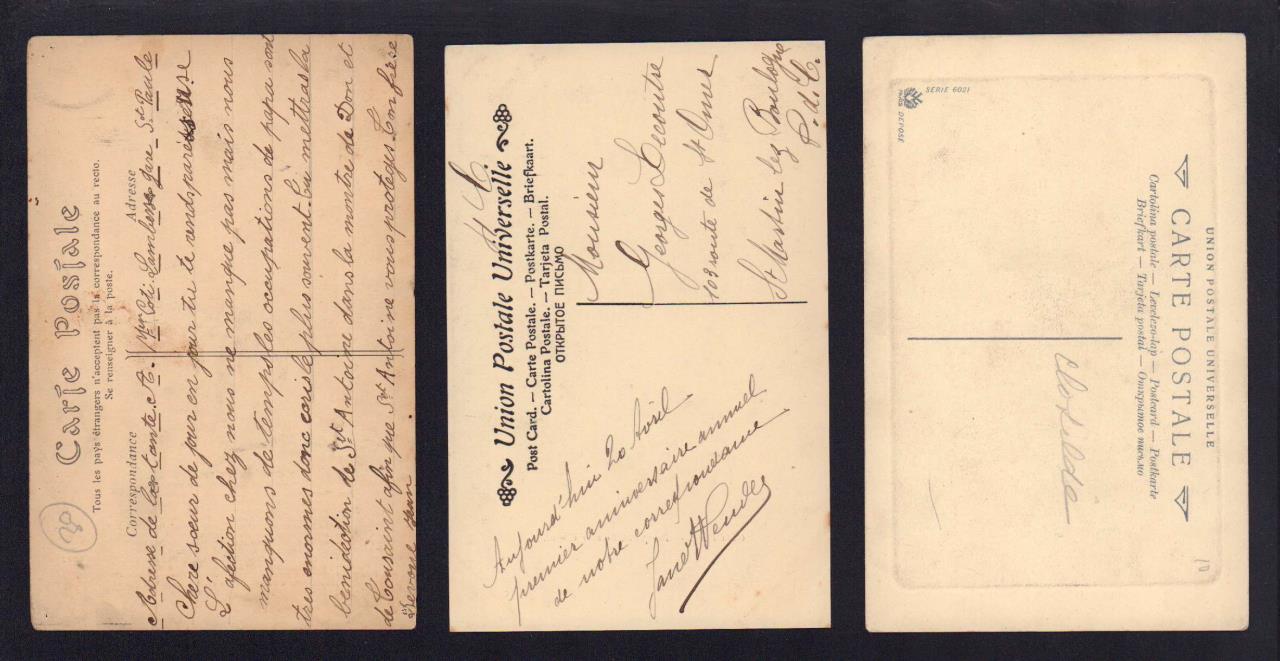 Carte Postale
Tous les pays étrangers n'acceptent pas la correspondance au recto.
Se renseigner à la poste.
Correspondance
Adresse
Adresse de la tante c.t. Mr Coti Lambesc gare Ste Paule
Chère sœur de jour en jour tu te rends paresseuse
L'afection chez nous ne manque pas mais nous
manquons de temps les occupations de papa sont
tres enormes donc écris le plus souvent. tu mettras la
benidiction de St Antoine dans la montre de Don et
de Tousaint afin que St Antoine vous protèges.
Union Postale Universelle
Post Card. — Carte Postale. — Postkarte. — Briefkaart.
Cartolina Postale. — Tarjeta Postal.
ОТКРЫТОЕ ПИСЬМО
Aujourd'hui 20 Avril
premier anniversaire annuel
de notre correspondance
Monsieur
Georges Lecoutre
103 route de St Omer
St Martin lez Boulogne
P. d. C.
SERIE 6021
DEPOSE
UNION POSTALE UNIVERSELLE
CARTE POSTALE
Cartolina postale — Levelezo-lap — Postcard — Postkarte
Briefkart — Tarjeta postal — Открытое письмо
Clotilde
10